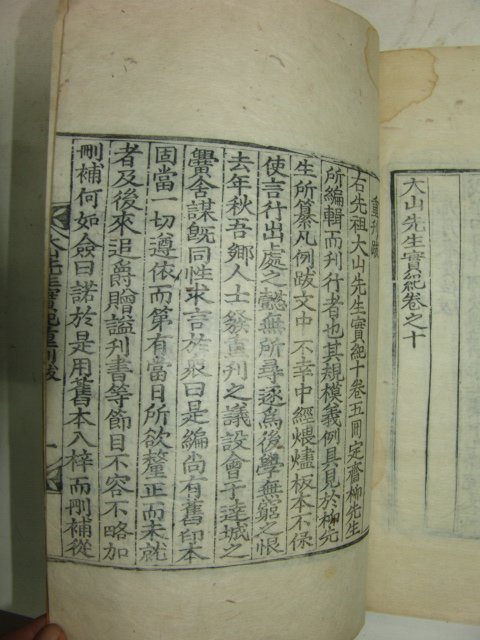 大山先生實紀卷之十
重刊跋
右先祖大山先生實紀十卷五冊定齋柳先生
所編輯而刊行者也其規模義例具見於柳先
生所纂凡例跋文中不幸中經煨燼板本不保
使言行出處之懿無所尋逐爲後學無窮之恨
去年秋吾鄉人士發重刊之議設會于達城之
黌舍謀旣同性求言於烺曰是編尙有舊印本
固當一切遵依而第有當日所欲釐正而未就
者及後來追爵贈謚刊書等節目不容不略加
刪補何如僉曰諾於是用舊本入梓而刪補從
大山先生實紀重刊跋
一